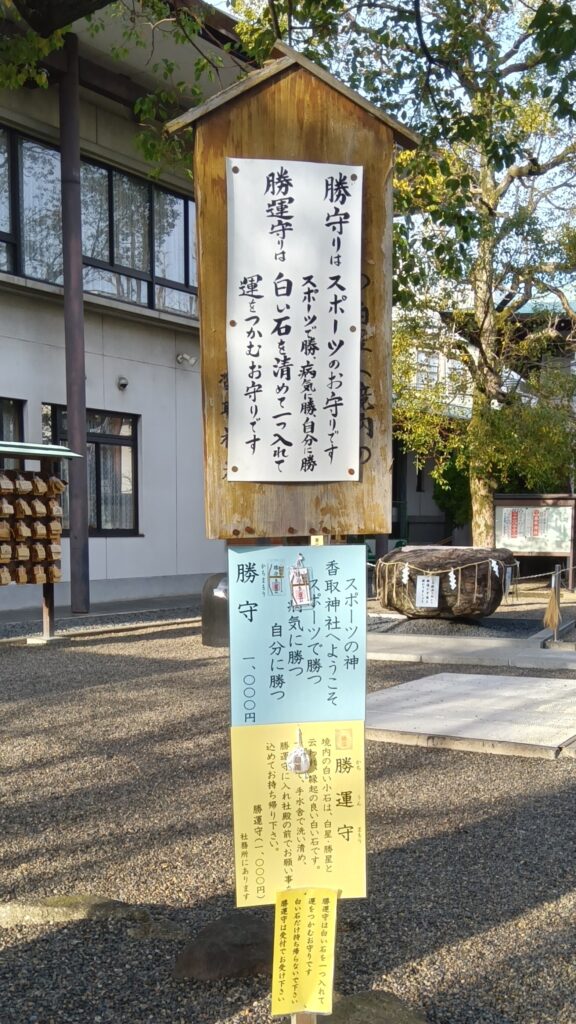 勝守りはスポーツのお守りです
スポーツで勝 病気に勝 自分に勝
勝運守りは白い石を清めて一つ入れて
運をつかむお守りです
スポーツの神
香取神社へようこそ
スポーツで勝つ
病気に勝つ
自分に勝つ
かちまもり
勝守
一、〇〇〇円
勝運守
かち うん まもり
境内の白い小石は、白星・勝星と
云われ、縁起の良い白い石です。
て、手水舎で洗い清め、
勝運守に入れ社殿の前でお願い事を
込めてお持ち帰り下さい。
勝運守(一、〇〇〇円)
社務所にあります
勝運守は白い石を一つ入れて
運をつかむお守りです
白い石だけ持ち帰らないで下さい
勝運守は受付でお受け下さい